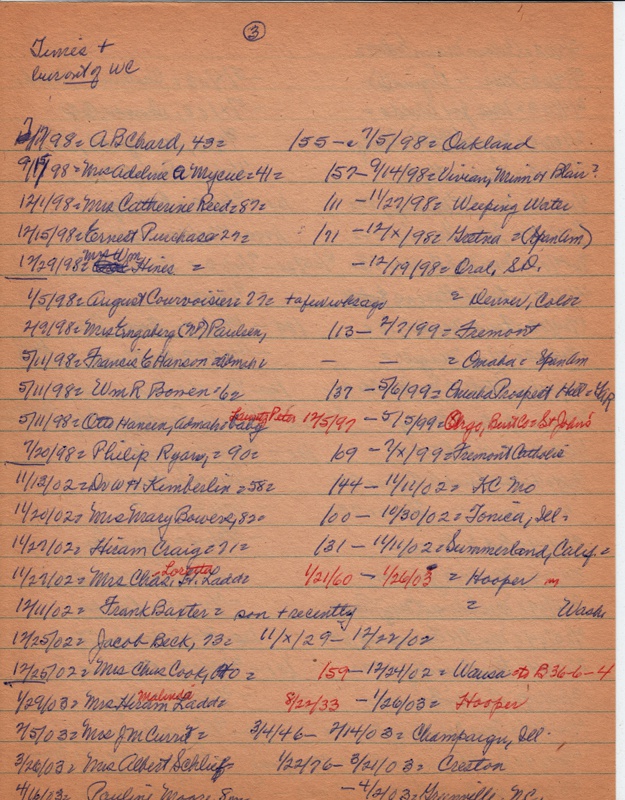 3
Times +
of WC
7/98 = A B Chard, 43 = 155 - 7/5/98 = Oakland
9/15/98 = Mrs Adeline A Mycue = 41 = 157 - 9/14/98 = Vivian, Minn or Blair?
12/1/98 = Mrs Catherine Reed = 87 = 111 - 11/27/98 = Weeping Water
12/15/98 = Ernest Purchase 27 = 171 - 12/x/98 = Gretna = (SpanAm)
12/29/98 = Mrs Wm Hines = - 12/19/98 = Oral, S.D.
1/5/98 = August Courvoisier = 77 = + a few wks ago = Denver, Color
2/9/98 = Mrs Engaberg (W) Paulsen, 113 - 2/7/99 = Fremont
5/11/98 = Francis E Hanson = Admah = - - = Omaha = SpanAm
5/11/98 = Wm R Bowen = 62 137 - 5/6/99 = Omaha Prospect Hill = GAR
5/11/98 = Otto Hansen, Admah = baby Peter 12/5/97 - 5/5/99 = Orgs, Burt Co = St John's
7/20/98 = Philip Ryan, = 90 = 169 - 7/x/99 = Fremont Catholic
11/13/02 = Dr W H Kimberlin = 58 = 144 - 11/11/02 = KC Mo
11/20/02 = Mrs Mary Bowers, 82 = 100 - 10/30/02 = Tonica, Ill =
11/27/02 = Hiram Craig = 71 = 131 - 11/11/02 = Summerland, Calif =
11/27/02 = Mrs Chas. Loretta H. Ladd = 1/21/60 - 1/26/03 = Hooper in
12/11/02 = Frank Baxter = son + recently = Wash
12/25/02 = Jacob Beck, 73 = 11/x/29 - 12/22/02
12/25/02 = Mrs Chas Cook, 40 = 159 - 12/24/02 = Wausa = B 36-6-4
1/29/03 = Mrs Hiram Malinda Ladd = 8/22/33 - 1/26/03 = Hooper
2/5/03 = Mrs J M Currit = 3/4/46 - 2/14/03 = Champaign, Ill.
3/26/03 = Mrs Albert Schlief 1/22/76 - 3/21/03 = Creston
4/16/03 = Pauline Moore - 4/2/03 = Granville, N.C.